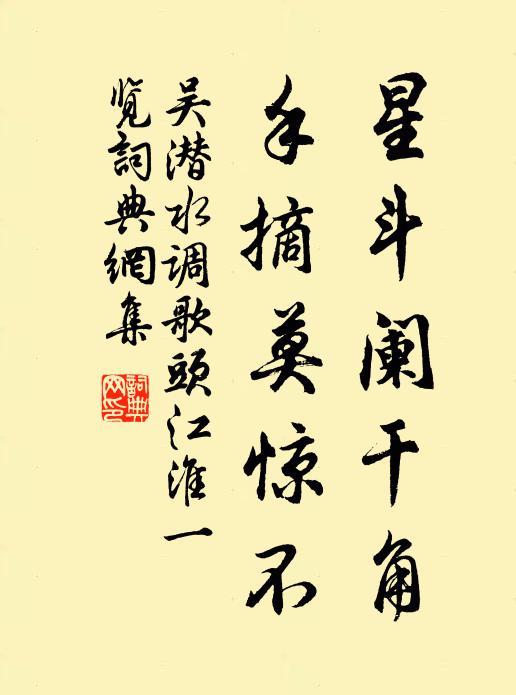 星斗阑干角
手摘莫惊不
吴潜水调歌头江淮一
览词典網集
詞典网印